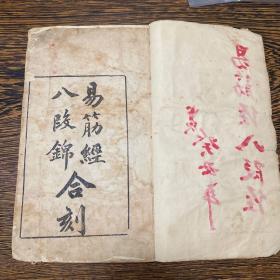 易筋經
八段錦
合刻
易筋經
八段錦